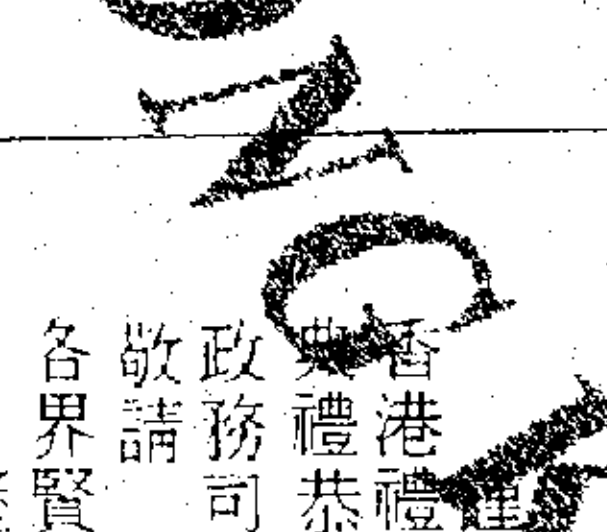 香港禮
典禮恭
政務司
敬請
各界賢
NG